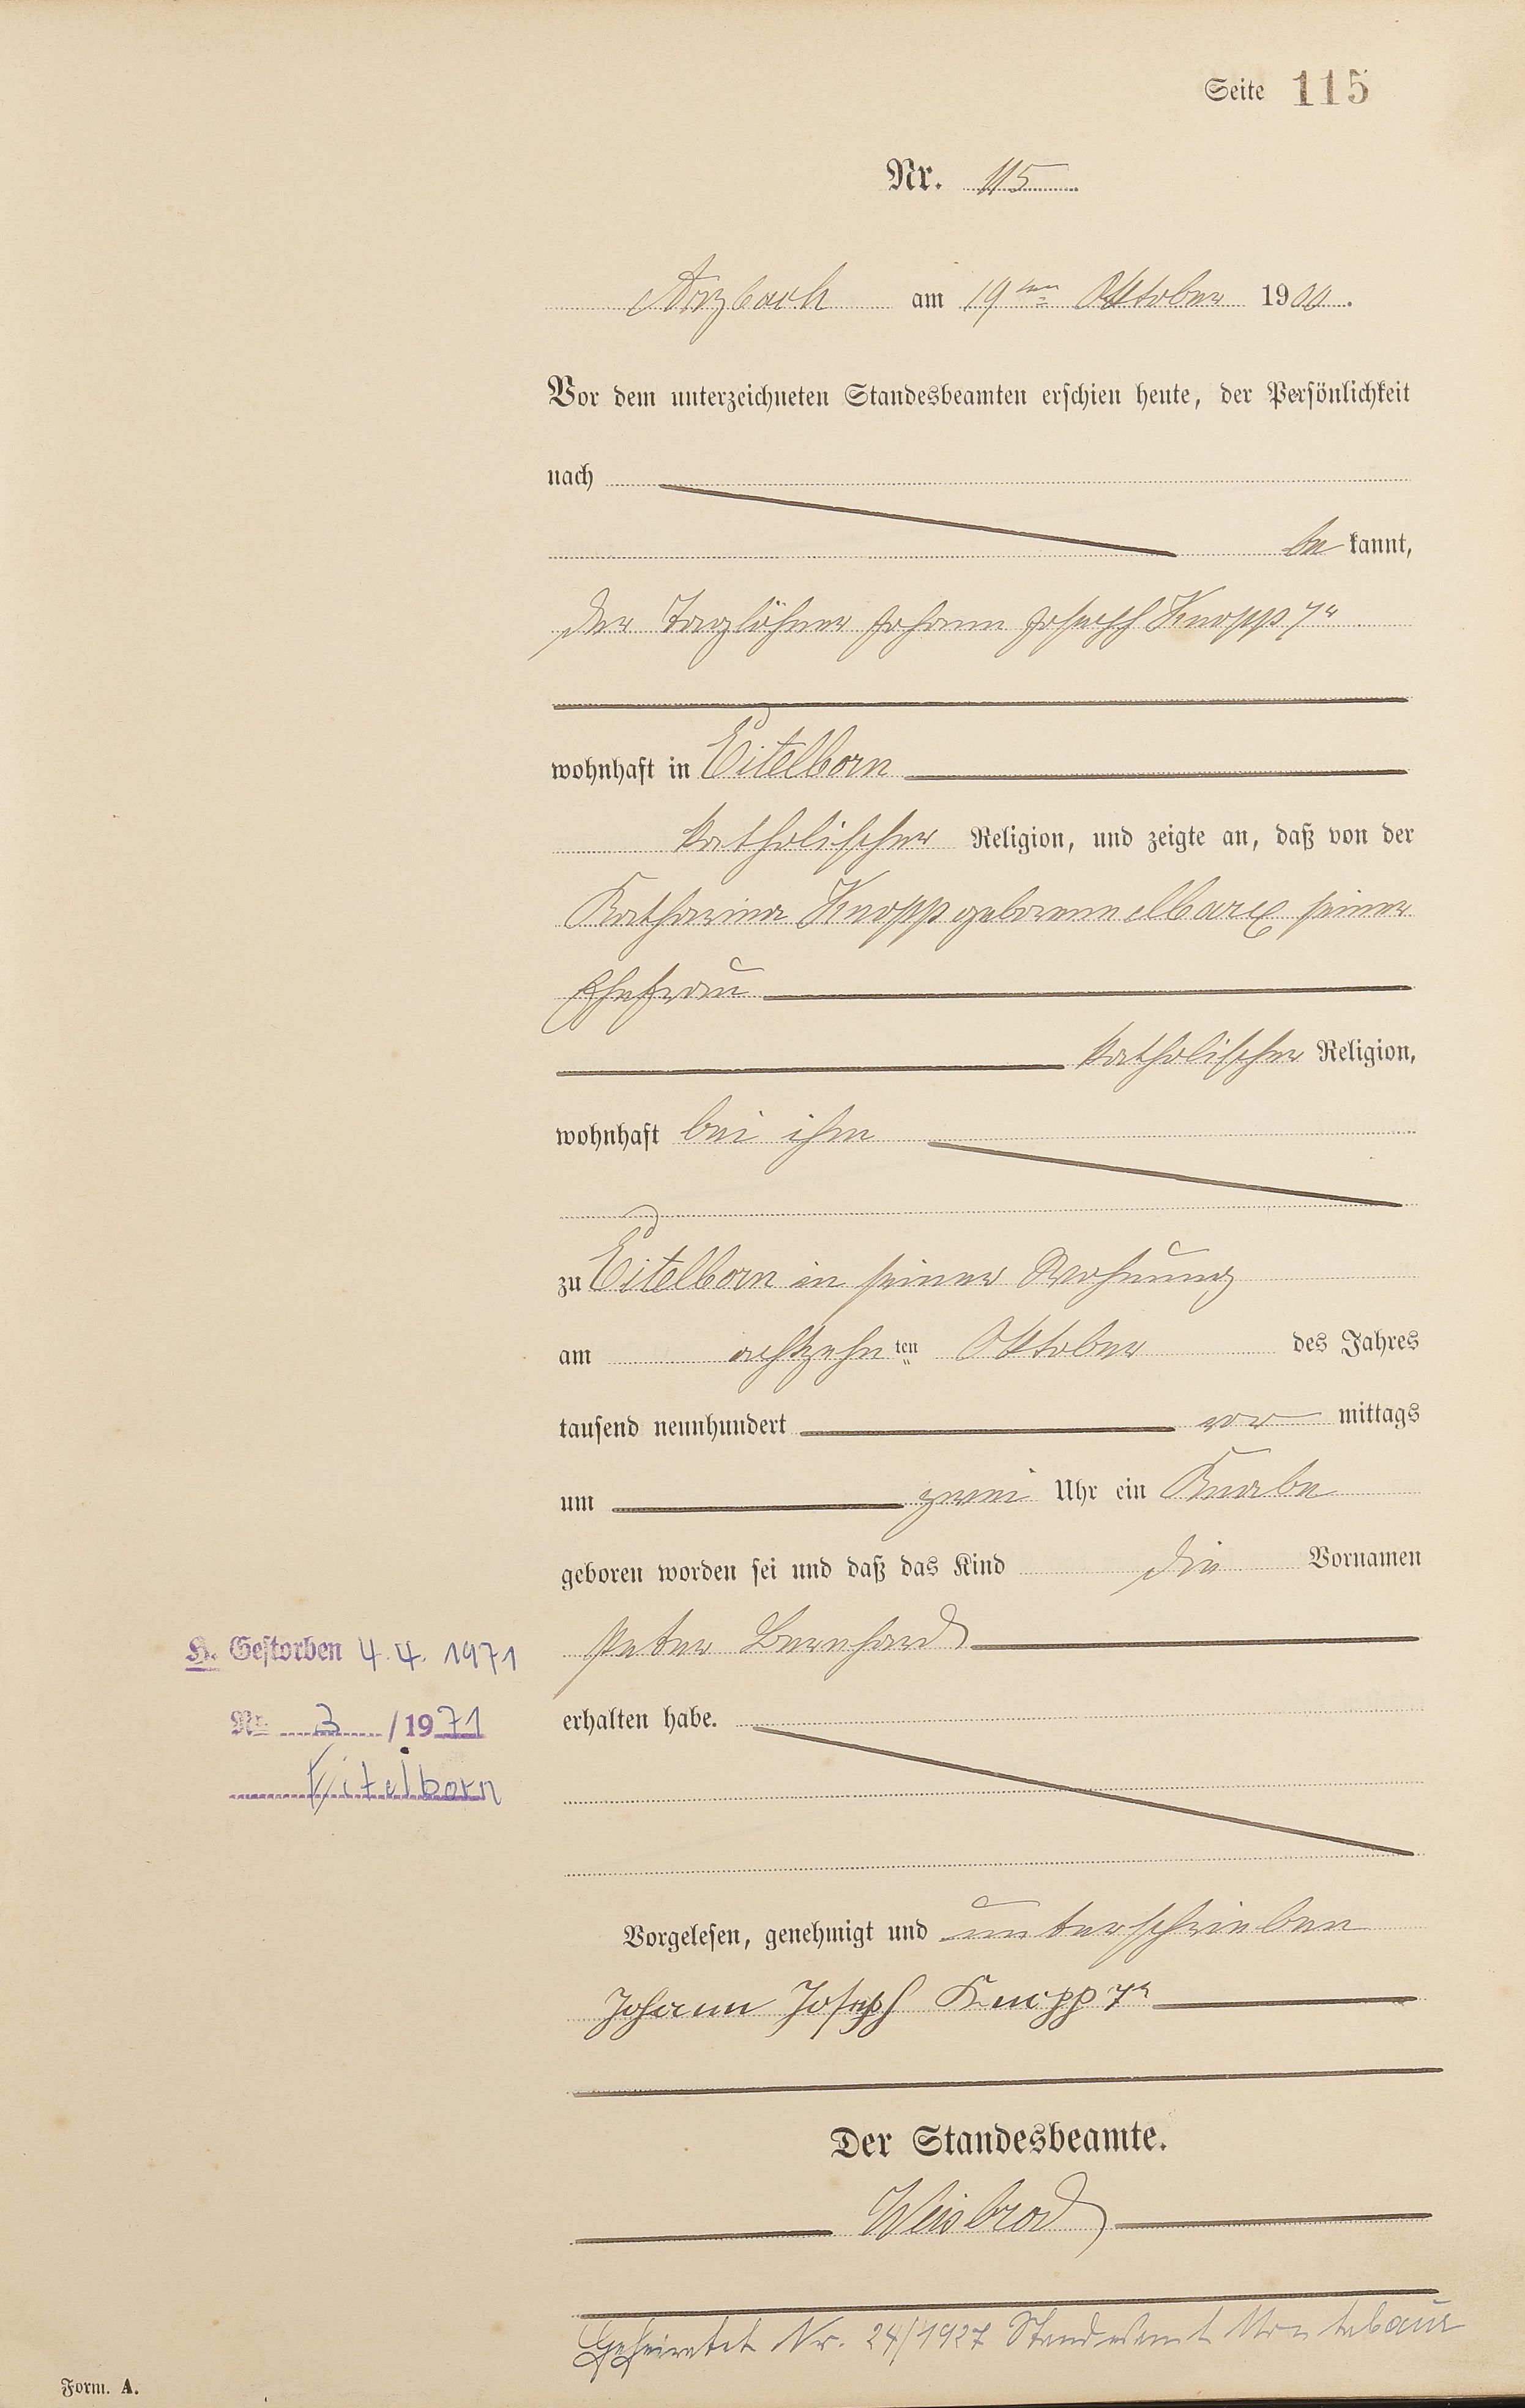 Seite 115
Nr. 115
Arzbach am 19ten Oktober 1900.
Vor dem unterzeichneten Standesbeamten erschien heute, der Persönlichkeit
nach
be kannt,
der Taglöhner Johann Joseph Knopp 7r
wohnhaft in Eitelborn
katholischer Religion, und zeigte an, daß von der
Katharina Knopp geborene Marx seiner
Ehefrau
katholischer Religion,
wohnhaft bei ihm
zu Eitelborn in seiner Wohnung
am achtzehn ten Oktober des Jahres
tausend neunhundert vor mittags
um zwei Uhr ein Knabe
geboren worden sei und daß das Kind die Vornamen
Peter Bernhard
H. Gestorben 4.4. 1971
Nr. 3 / 1971
Eitelborn
erhalten habe.
Vorgelesen, genehmigt und unterschrieben
Johann Joseph Knopp 7r
Der Standesbeamte.
Weisbrod
Geheiratet Nr. 24/1927 Standesamt Montabaur
Form. A.